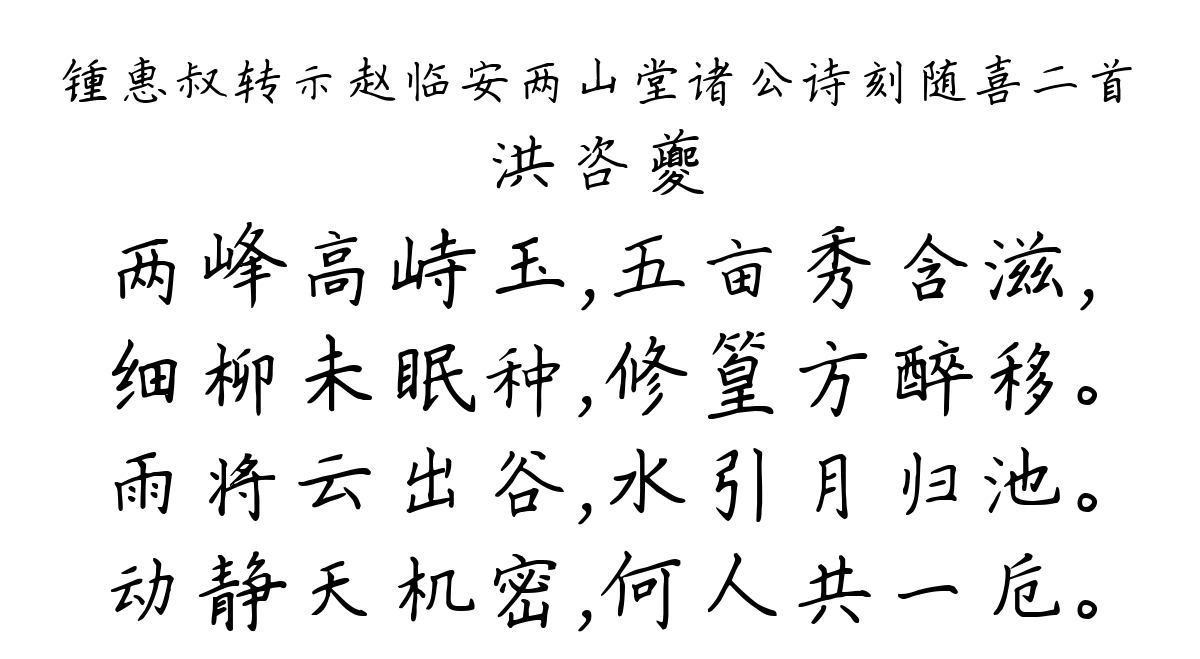 锺惠叔转示赵临安两山堂诸公诗刻随喜二首
洪咨夔
两峰高峙玉,五亩秀含滋,
细柳未眠种,修篁方醉移。
雨将云出谷,水引月归池。
动静天机密,何人共一卮。